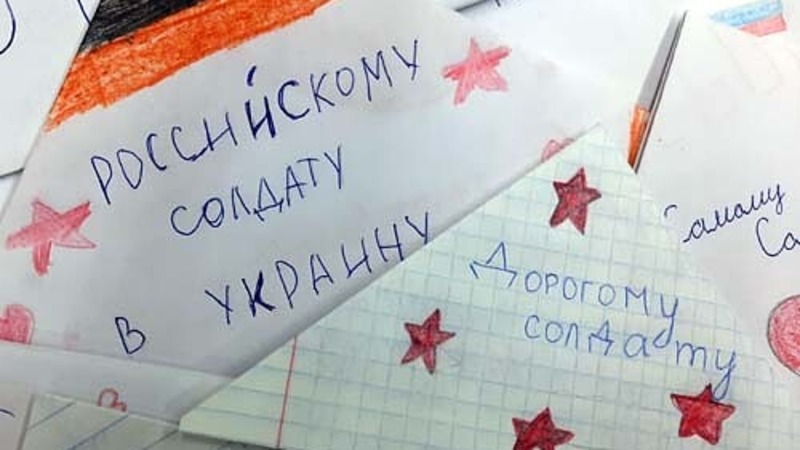 РОССИЙСКОМУ
СОЛДАТУ
В УКРАИНУ
Дорогому
солдату
Самому